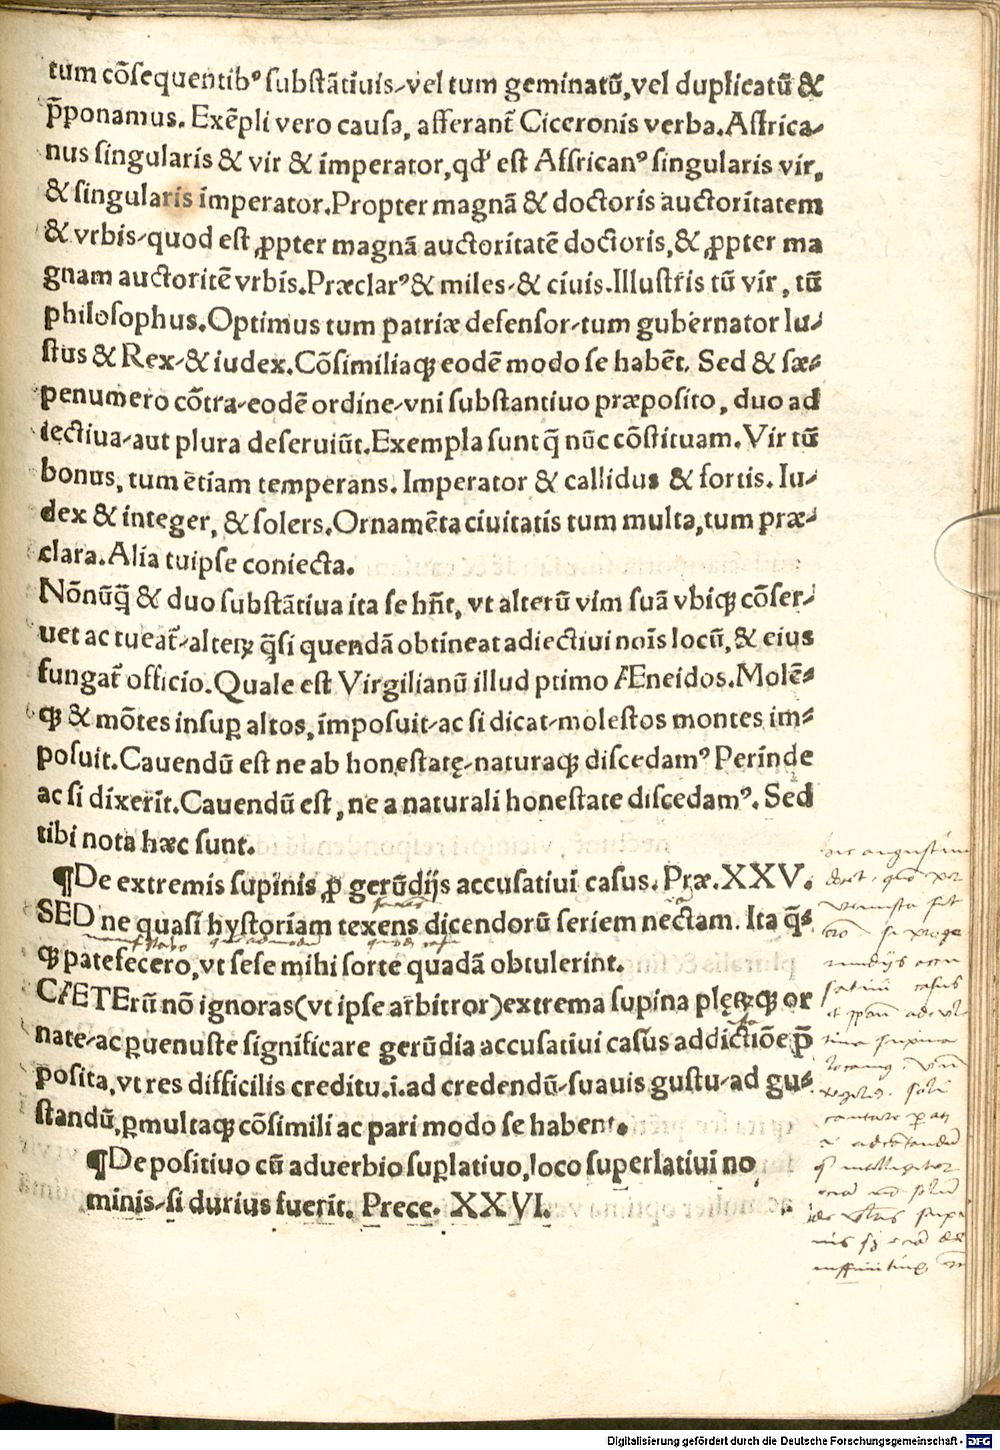 tum cōsequentibꝰ substātiuis⸗vel tum geminatū,vel duplicatū &
p̄ponamus. Exēpli vero causa, afferant̄ Ciceronis verba.Affrica⸗
nus singularis & vir & imperator,qđ est Affricanꝰ singularis vir,
& singularis imperator.Propter magnā & doctoris auctoritatem
& vrbis⸗quod est ꝓpter magnā auctoritatē doctoris,& ꝓpter ma
gnam auctoritē vrbis.Præclarꝰ & miles⸗& ciuis.Illustris tū vir, tū
philosophus.Optimus tum patriæ defensor⸗tum gubernator Iu⸗
stus & Rex⸗& iudex.Cōsimiliaqꝫ eodē modo se habēt. Sed & sæ⸗
penumero cōtra⸗eodē ordine⸗vni substantiuo præposito, duo ad
iectiua⸗aut plura deseruiūt.Exempla sunt q̄ nūc cōstituam.Vir tū
bonus, tum ētiam temperans. Imperator & callidus & fortis. Iu⸗
dex & integer, & solers.Ornamēta ciuitatis tum multa,tum præ⸗
clara.Alia tuipse coniecta.
Nōnūq̄ & duo substātiua ita se hn̄t, vt alterū vim suā vbiqꝫ cōser⸗
uet ac tueat̄⸗alteꝝ q̄si quendā obtineat adiectiui noīs locū,& eius
fungat̄ officio.Quale est Virgilianū illud primo Æneidos.Molē⸗
qꝫ & mōtes insuꝑ altos, imposuit⸗ac si dicat⸗molestos montes im⸗
posuit.Cauendū est ne ab honestatę⸗naturaqꝫ discedamꝰ Perinde
ac si dixerit.Cauendū est, ne a naturali honestate discedamꝰ. Sed
tibi nota hæc sunt.
¶De extremis supinis p̄ gerūdijs accusatiui casus. Præ.XXV.
SED ne quasi hystoriam texens dicendorū seriem nectam. Ita q̄⸗
qꝫ patefecero,vt sese mihi sorte quadā obtulerint.
CÆTErū nō ignoras(vt ipse ar̄bitror)extrema supina plęꝝqꝫ or
nate⸗ac ꝑuenuste significare gerūdia accusatiui casus addictiōe p̄
posita,vt res difficilis creditu.i.ad credendū⸗suauis gustu⸗ad gu⸗
standū,ꝑmultaqꝫ cōsimili ac pari modo se habent.
¶De positiuo cū aduerbio suꝑlatiuo,loco superlatiui no
minis⸗si durius fuerit. Prece. XXVI.
Digitalisierung gefördert durch die Deutsche Forschungsgemeinschaft - DFG